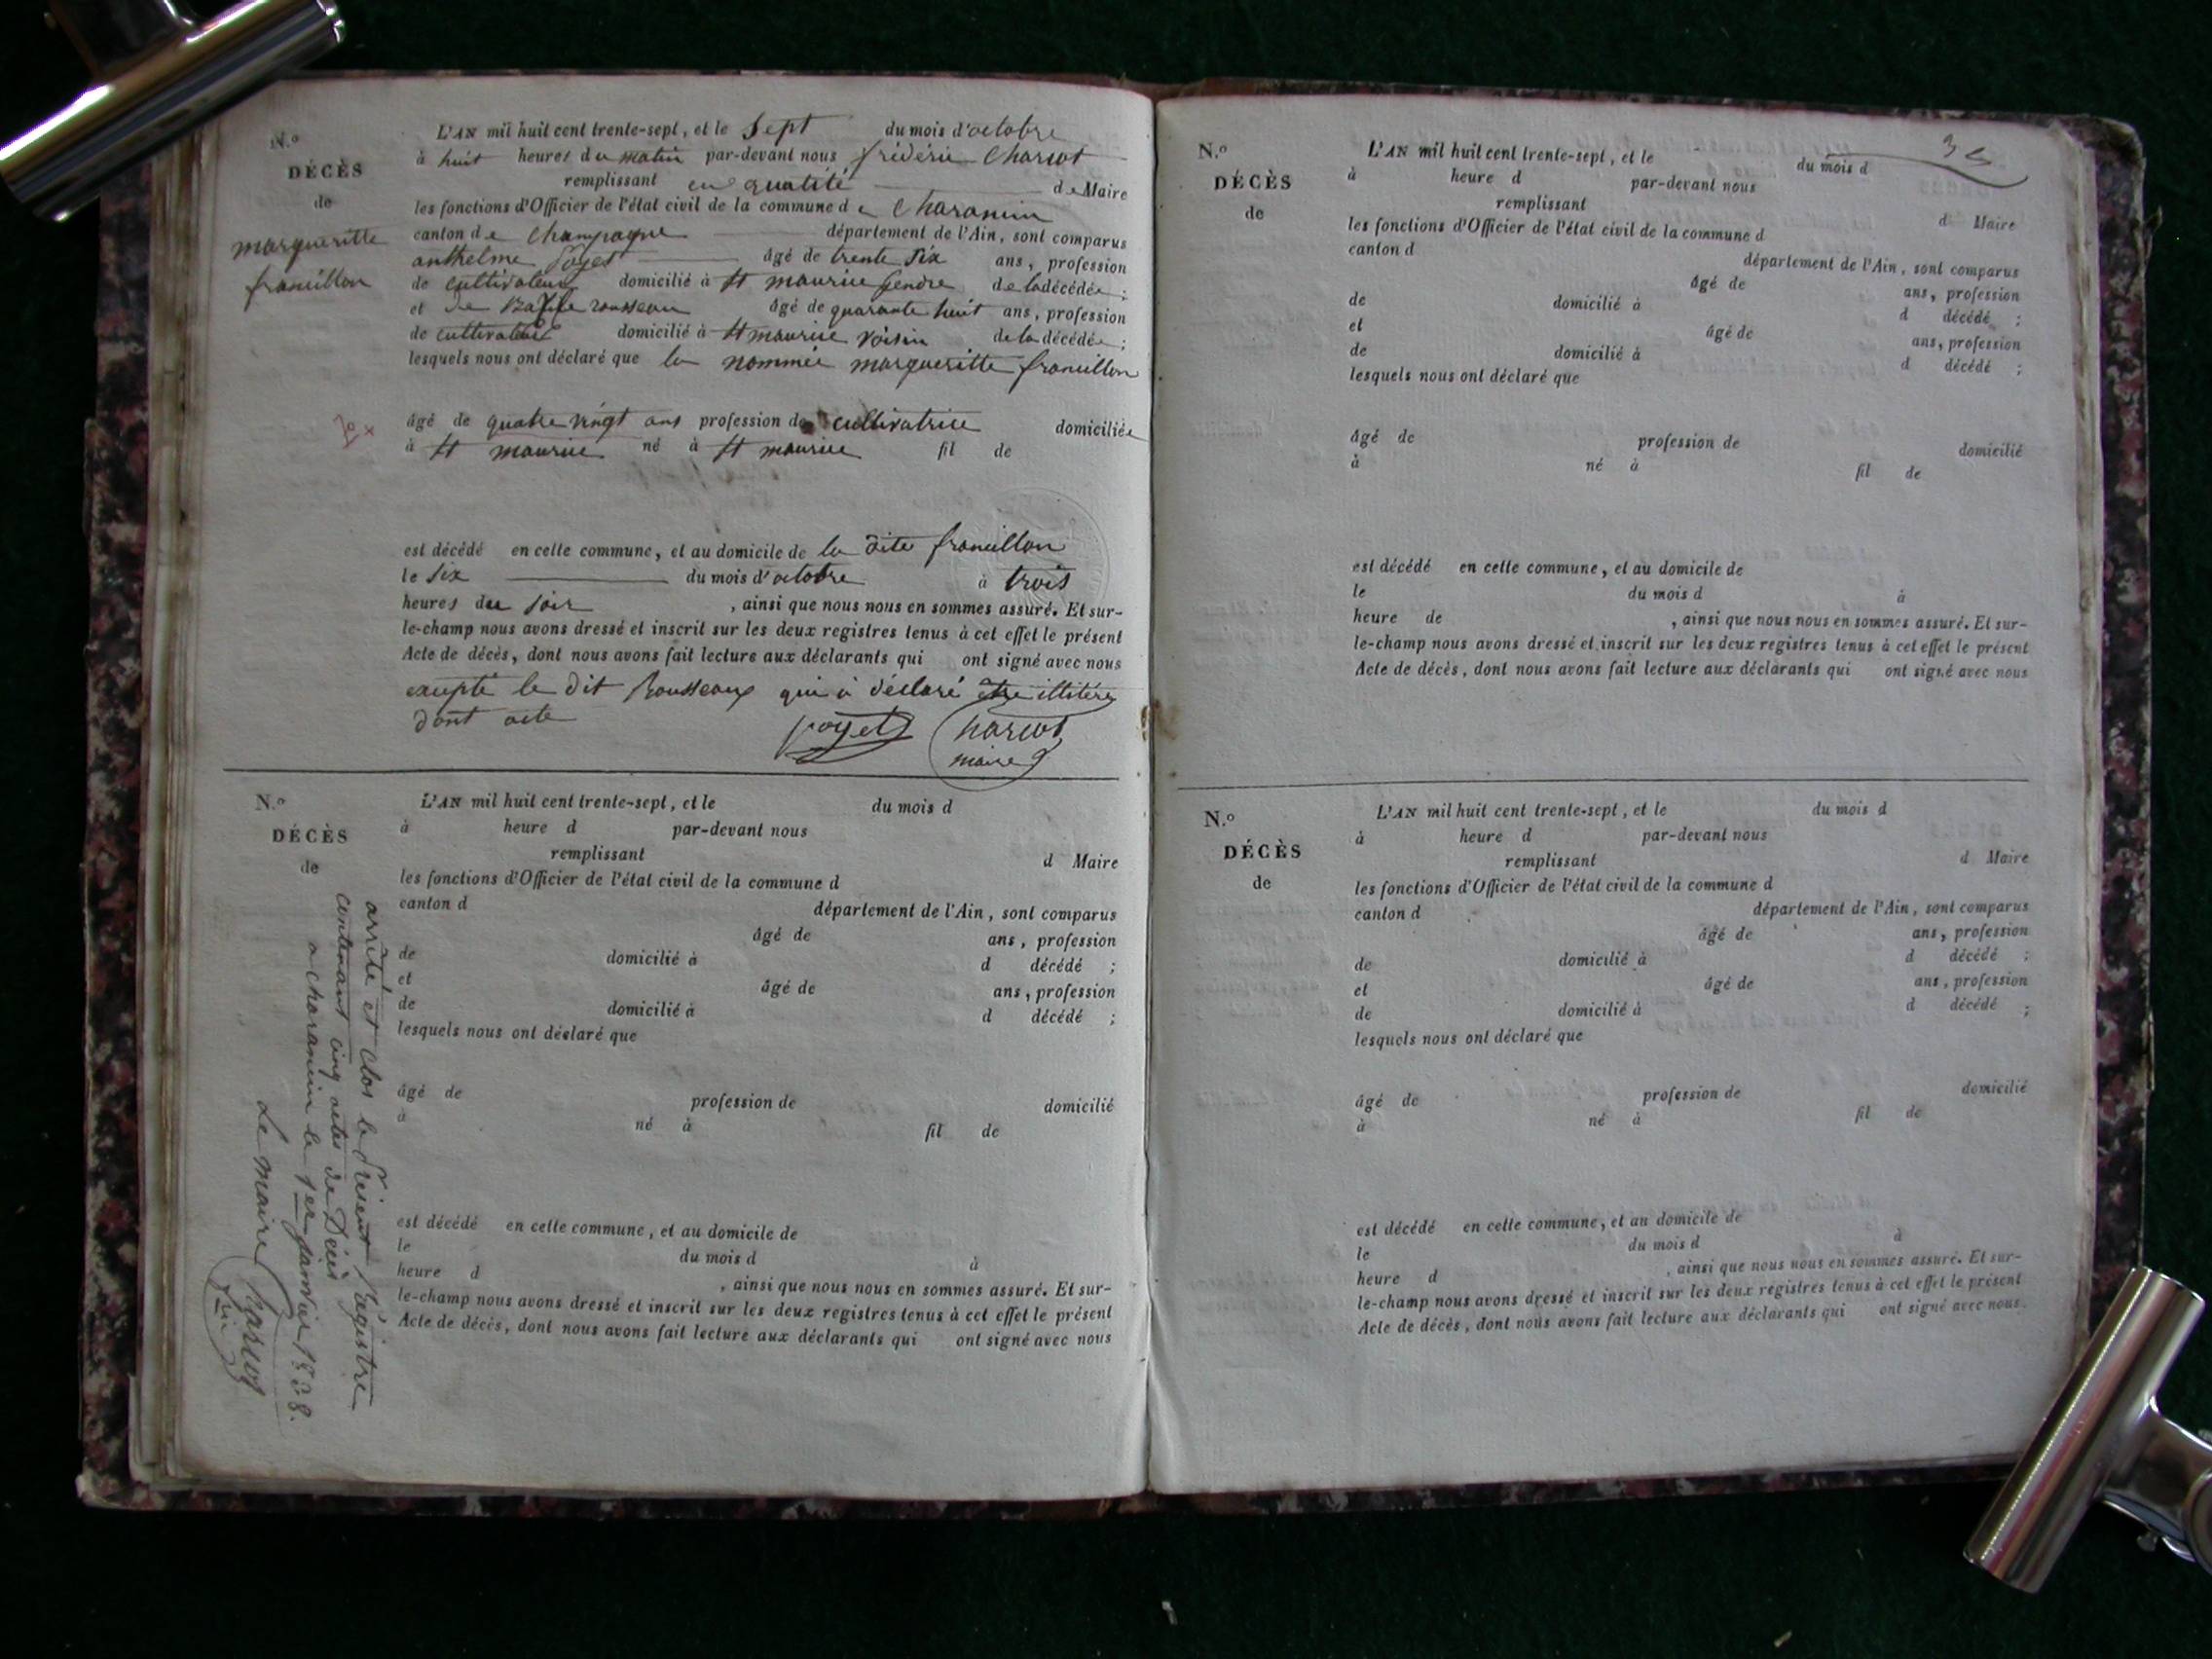 N.o
DÉCÈS
de
margueritte
franeillon
L'AN mil huit cent trente-sept, et le Sept du mois d'octobre
à huit heures du matin par-devant nous frédéric Charcot
remplissant en qualité de Maire
les fonctions d'Officier de l'état civil de la commune de Charancin
canton de Champagne département de l'Ain, sont comparus
anthelme Poyet âgé de trente six ans, profession
de cultivateur domicilié à St maurice gendre de la décédée ;
et de rousseau âgé de quarante huit ans, profession
de cultivateur domicilié à St maurice voisin de la décédée ;
lesquels nous ont déclaré que la nommée margueritte franeillon
âgé de quatre vingt ans profession de cultivatrice domiciliée
à St maurice né à St maurice fil de
est décédé en cette commune, et au domicile de la dite franeillon
le Six du mois d'octobre à trois
heures du soir , ainsi que nous nous en sommes assuré. Et sur-
le-champ nous avons dressé et inscrit sur les deux registres tenus à cet effet le présent
Acte de décès, dont nous avons fait lecture aux déclarants qui ont signé avec nous
excepté le dit Rousseaux qui à déclaré être illitéré
dont acte
poyet Charcot
maire
N.o
DÉCÈS
de
L'AN mil huit cent trente-sept, et le du mois d
à heure d par-devant nous
remplissant d Maire
les fonctions d'Officier de l'état civil de la commune d
canton d département de l'Ain, sont comparus
âgé de ans, profession
de domicilié à d décédé ;
et âgé de ans, profession
de domicilié à d décédé ;
lesquels nous ont déclaré que
âgé de profession de domicilié
à né à fil de
est décédé en cette commune, et au domicile de
le du mois d à
heure d , ainsi que nous nous en sommes assuré. Et sur-
le-champ nous avons dressé et inscrit sur les deux registres tenus à cet effet le présent
Acte de décès, dont nous avons fait lecture aux déclarants qui ont signé avec nous
arrêté et clos le présent Régistre
contenant cinq actes de Décès
a charancin le 1er janvier 1838.
Le maire Charcot
N.o
DÉCÈS
de
L'AN mil huit cent trente-sept, et le du mois d
à heure d par-devant nous
remplissant d Maire
les fonctions d'Officier de l'état civil de la commune d
canton d département de l'Ain, sont comparus
âgé de ans, profession
de domicilié à d décédé ;
et âgé de ans, profession
de domicilié à d décédé ;
lesquels nous ont déclaré que
âgé de profession de domicilié
à né à fil de
est décédé en cette commune, et au domicile de
le du mois d à
heure de , ainsi que nous nous en sommes assuré. Et sur-
le-champ nous avons dressé et inscrit sur les deux registres tenus à cet effet le présent
Acte de décès, dont nous avons fait lecture aux déclarants qui ont signé avec nous
N.o
DÉCÈS
de
L'AN mil huit cent trente-sept, et le du mois d
à heure d par-devant nous
remplissant d Maire
les fonctions d'Officier de l'état civil de la commune d
canton d département de l'Ain, sont comparus
âgé de ans, profession
de domicilié à d décédé ;
et âgé de ans, profession
de domicilié à d décédé ;
lesquels nous ont déclaré que
âgé de profession de domicilié
à né à fil de
est décédé en cette commune, et au domicile de
le du mois d à
heure d , ainsi que nous nous en sommes assuré. Et sur-
le-champ nous avons dressé et inscrit sur les deux registres tenus à cet effet le présent
Acte de décès, dont nous avons fait lecture aux déclarants qui ont signé avec nous.